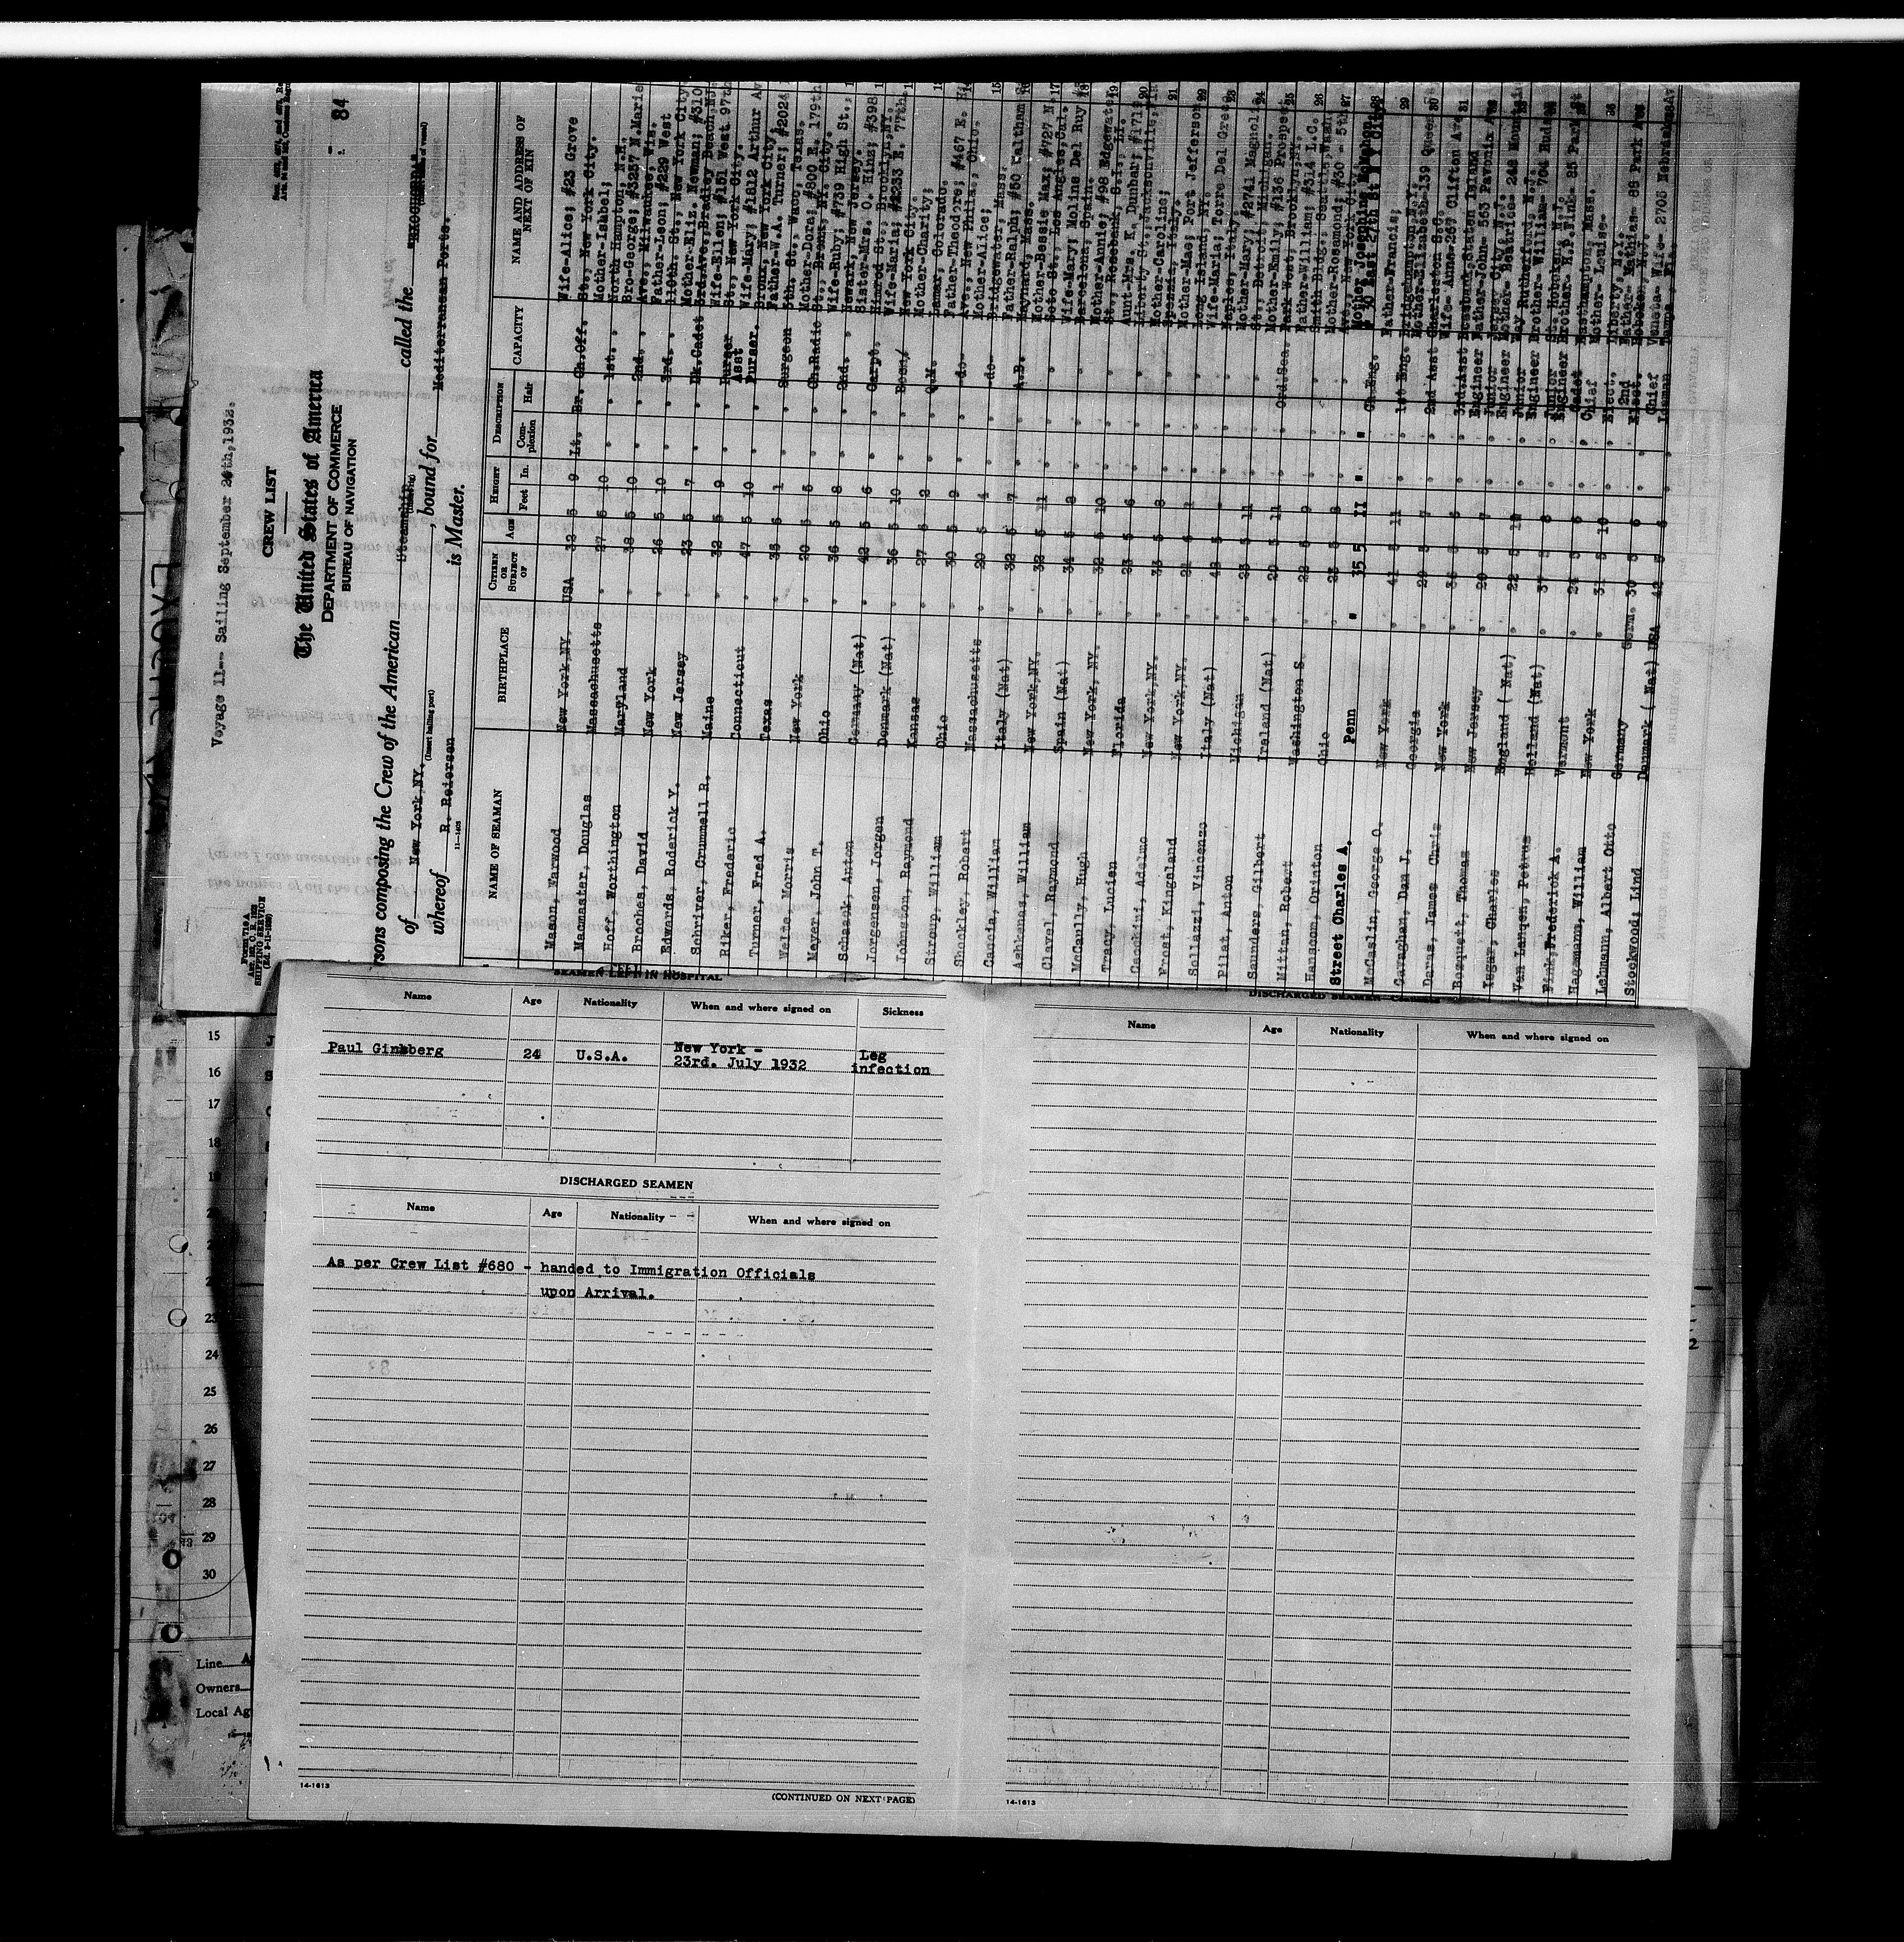 Voyage 11-- Sailing September 20th, 1932.
CREW LIST
84
The United States of America
DEPARTMENT OF COMMERCE
BUREAU OF NAVIGATION
FORM 710 A
SHIPPING SERVICE
rsons composing the Crew of the American Steamship called the "EXOCHORDA"
of New York, NY. , bound for Mediterranean Ports.
(Insert hailing port)
whereof R. Reiersen is Master.
11-1403
NAME OF SEAMAN BIRTHPLACE CITIZEN OR SUBJECT OF AGE HEIGHT Feet In. DESCRIPTION Com-plexion Hair CAPACITY NAME AND ADDRESS OF NEXT OF KIN
Mason, Warwood New York, NY. USA 32 5 9 Lt. Br. Ch.Off. Wife-Alice; #23 Grove St., New York City.
Macmaster, Douglas Massachusetts 27 5 10 1st. Mother-Isabel; North Hampton, N.H.
Hoff, Worthington Maryland 38 5 10 2nd. Bro-George; #3257 N.Marie Ave., Milwaukee, Wis.
Broches, David New York 26 5 10 3rd. Father-Leon; #229 West 110th. St., New York City
Edwards, Roderick Y. New Jersey 23 5 7 Dk.Cadet Mother-Eliz. Newman; #310 3rd.Ave., Bradley Beach, NJ.
Schriver, Crummell R. Maine 32 5 9 Purser Wife-Ellen; #151 West 97th St., New York City.
Riker, Frederic Connecticut 47 5 10 Asst Purser. Wife-Mary; #1812 Arthur Av Bronx, New York City.
Turner, Fred A. Texas 35 6 1 Surgeon Father-W.A. Turner; #2024 5th. St., Waco, Texas.
Weltz, Morris New York 20 5 5 Ch.Radio Mother-Dora; #800 E. 179th St., Bronx, NY. City.
Meyer, John T. Ohio 36 5 8 2nd. Wife-Ruby; #739 High St., Newark, New Jersey.
Schaack, Anton Germany (Nat) 42 5 6 Carpt. Sister-Mrs. O. Hinz; #398 Himrod St., Brooklyn, NY.
Jorgensen, Jorgen Denmark (Nat) 36 5 10 Bosn Wife-Marie; #2233 E. 77th New York City.
Johnston, Raymond Kansas 27 6 2 Q.M. Mother-Charity; Lamar, Colorado.
Stroup, William Ohio 30 5 9 -do- Father-Theodore; #467 E. Ave., New Phila., Ohio.
Shockley, Robert Massachusetts 20 5 4 -do- Mother-Alice; Bridgewater, Mass.
Caccia, William Italy (Nat) 32 5 7 A.B. Father-Ralph; #50 Waltham Maynard, Mass.
Ashkenas, William New York, NY. 32 5 11 Mother-Bessie Max; #727 N. Soto St., Los Angles, Cal.
Clavel, Raymond Spain (Nat) 34 5 8 Wife-Mary; Molins Del Ruy Barcelona, Spain.
McCaully, Hugh New York, NY. 32 5 10 Mother-Annie; #98 Edgewater St., Rosebank, S.I., LI.
Tracy, Lucien Florida 23 5 6 Aunt-Mrs. K. Dunhar; #171 Liberty St., Jacksonville,
Cecchini, Adelmo New York, NY. 33 5 8 Mother-Caroline; Spezzi, Italy.
Frost, Kingsland New York, NY. 21 6 1 Mother-Mae; Port Jefferson Long Island, NY.
Sollazzi, Vincenzo Italy (Nat) 42 5 Wife-Maria; Torre Del Grec Naples, Italy
Pilat, Anton Michigan 23 5 11 Mother-Mary; #2741 Magnolia St., Detroit, Michigan.
Saunders, Gilbert Ireland (Nat) 20 5 11 Ord.Sea. Mother-Emily; #136 Prospect Park West, Brooklyn, NY.
Mittan, Robert Washington S. 22 5 9 Father-William; #314 L.C. Smith Bldg., Seattle, Wash.
Hanscom, Orinton Ohio 23 5 8 Mother-Rosamond; #30 - 5th Ave., New York City.
Street Charles A. Penn 35 5 11 Ch.Eng. Mother Josephine McMahon, 30 East 27th St N Y City
McCaslin, George O. New York 41 5 11 1st Eng. Father-Francis; Bridgehampton, N.Y.
Carnaghan, Dan J. Georgia 29 5 7 2nd Asst Mother-Elizabeth-139 Queen St Charleston S.C.
Daras, James Chris New York 36 5 6 3rd Asst Engineer Wife- Anna-267 Clifton Ave Rosebank, Staten Island
Bozquett, Thomas New Jersey 20 5 7 Junior Engineer Father-John- 563 Pavonia Ave Jersey City N.J.
Isgar, Charles England (Nat) 22 5 10 Junior Engineer Mother- Beatrice- 248 Mountain Way Rutherford, N.J.
Van Langen, Petrus Holland (Nat) 37 5 8 Junior Engineer Brother- William- 704 Hudson St. Hoboken, N.J.
Fink, Frederick A. Vermont 24 5 6 Cadet Brother- W.P.Fink- 25 Park St Easthampton, Mass.
Hagemann, William New York 31 5 10 Chief Elect. Mother- Louise- Liberty, N.Y.
Lehmann, Albert Otto Germany Germ. 30 5 6 2nd Elect. Father- Mathias- 88 Park Ave Hoboken, N.J.
Stockwood; Lind Denmark (Nat) USA 42 5 6 Chief Veneta- Wife- 2705 Nebraska Av Tampa, Fl.
SEAMEN LEFT IN HOSPITAL
Name Age Nationality When and where signed on Sickness
Paul Ginsberg 24 U.S.A. New York - 23rd. July 1932 Leg infection
DISCHARGED SEAMEN
Name Age Nationality When and where signed on
As per Crew List #680 - handed to Immigration Officials
upon Arrival.
14-1613
(CONTINUED ON NEXT PAGE)
DISCHARGED SEAMEN
Name Age Nationality When and where signed on
14-1613
15
16
17
18
19
23
24
25
26
27
28
29
30
Line
Owners
Local Ag